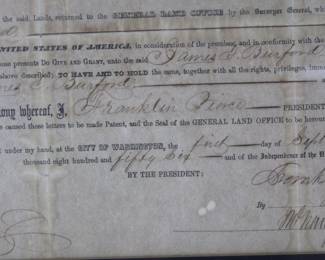 the said Lands, returned to the GENERAL LAND OFFICE by the Surveyor General, wh
UNITED STATES OF AMERICA, in consideration of the premises, and in conformity with th
se presents DO GIVE AND GRANT, unto the said James S. Burford
above described;) TO HAVE AND TO HOLD the same, together with all the rights, privileges, immu
mes S. Burford
ony whereof, I, Franklin Pierce PRESIDENT
e caused these letters to be made Patent, and the Seal of the GENERAL LAND OFFICE to be hereun
under my hand, at the CITY OF WASHINGTON, the first day of Sept
thousand eight hundred and fifty six and of the Independence of the
BY THE PRESIDENT:
By